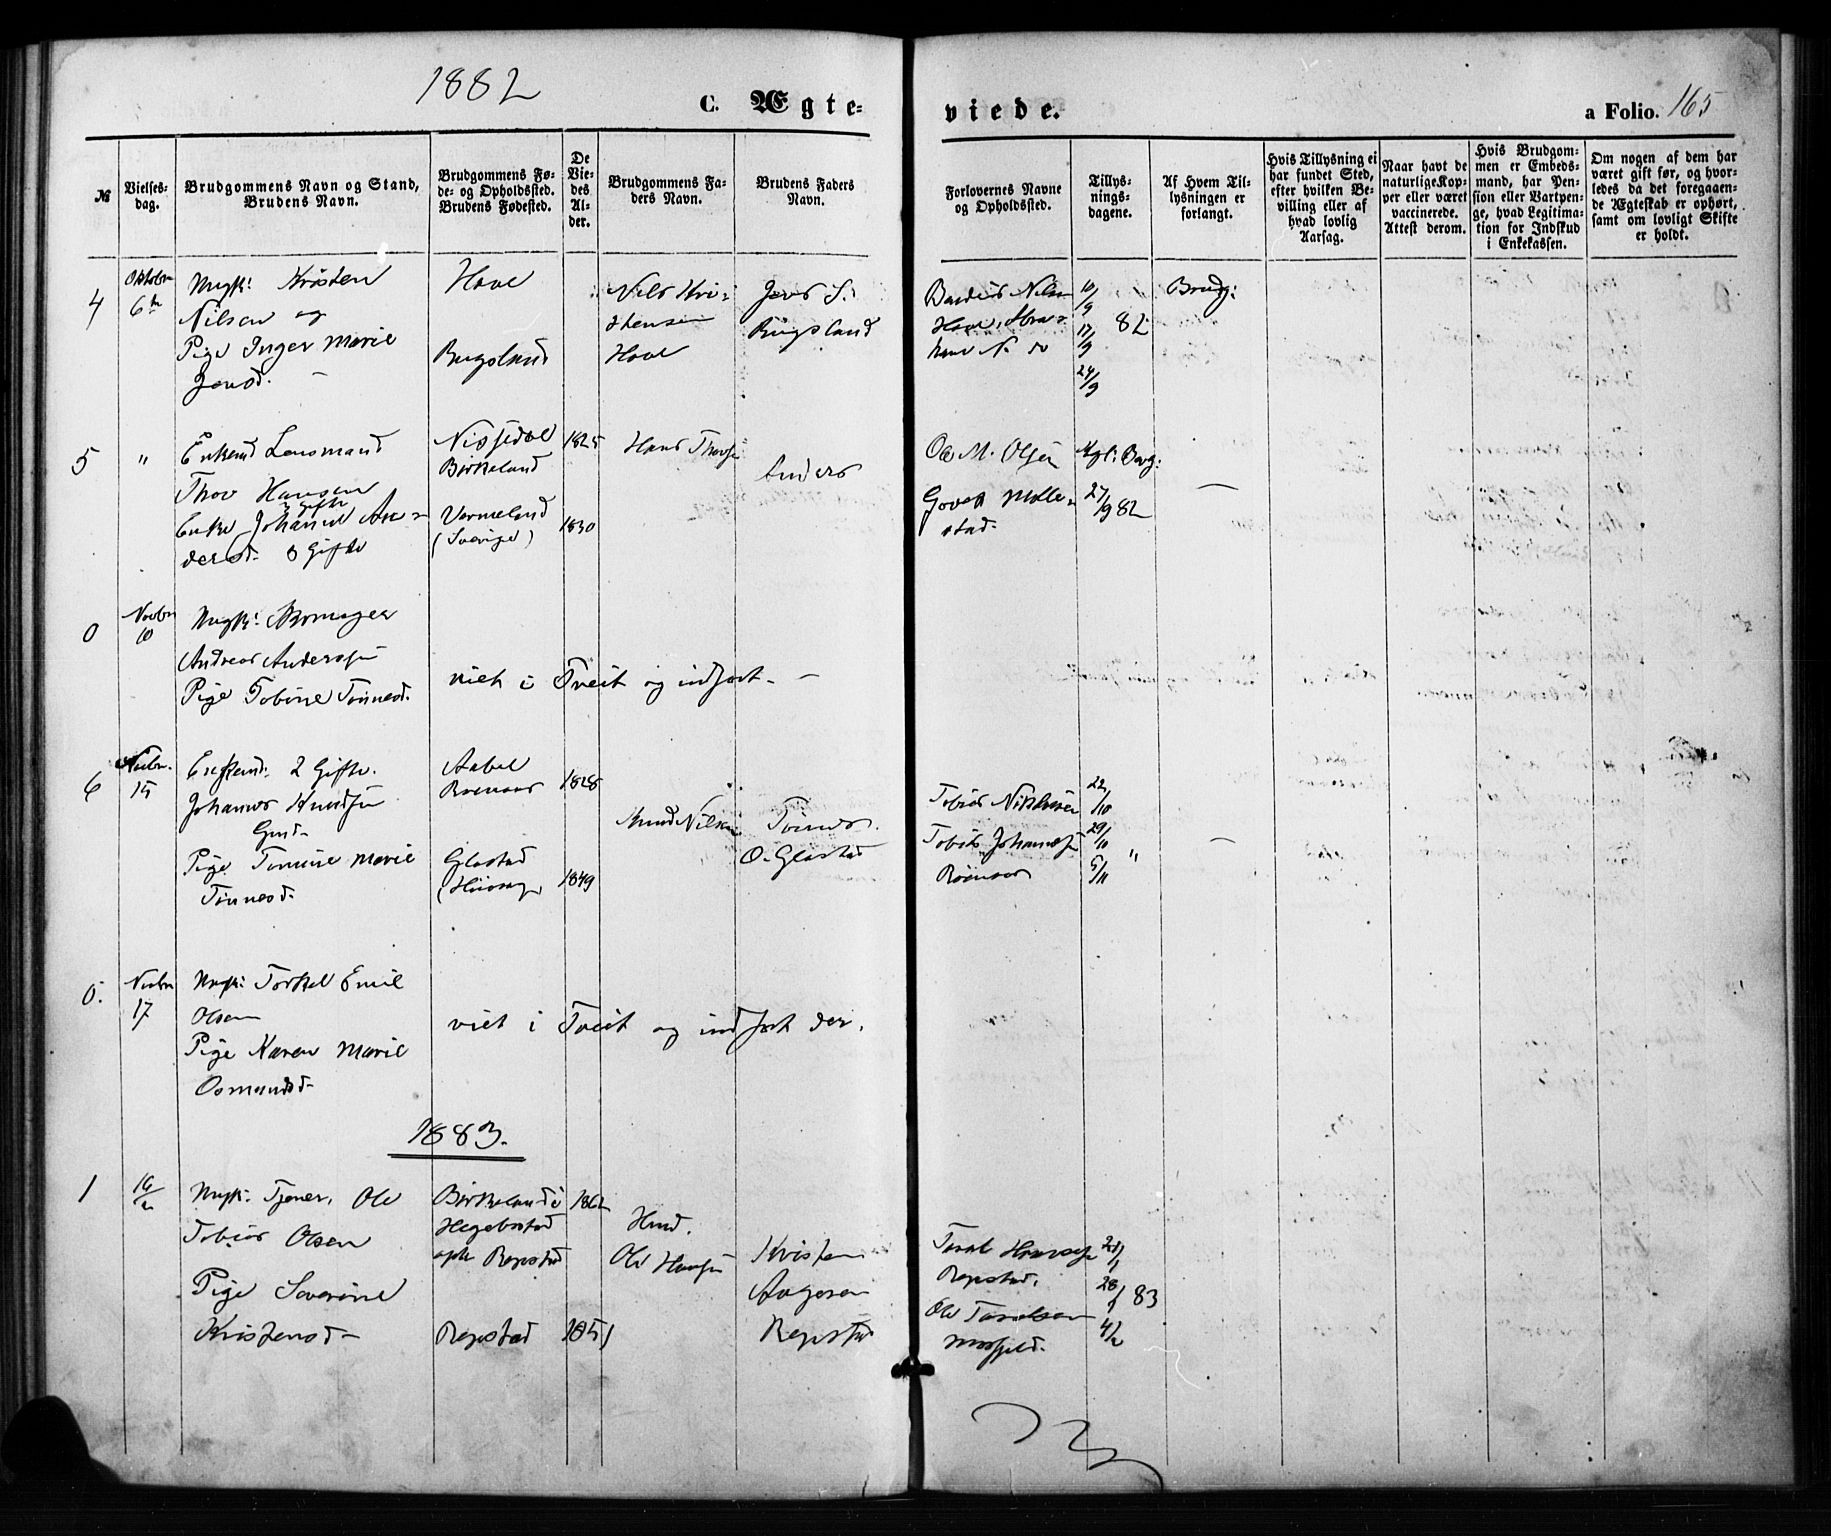 1882
C. Ægte-
viede.
a Folio. 165
№
Vielses-
dag.
Brudgommens Navn og Stand,
Brudens Navn.
Brudgommens Fø-
de- og Opholdssted.
Brudens Fødested.
De
Vie-
des
Al-
der.
Brudgommens Fa-
ders Navn.
Brudens Faders
Navn.
Forlovernes Navne
og Opholdssted.
Tillys-
nings-
dagene.
Af Hvem Til-
lysningen er
forlangt.
Hvis Tillysning ei
har fundet Sted,
efter hvilken Be-
villing eller af
hvad lovlig
Aarsag.
Naar havt de
naturlige Kop-
per eller været
vaccinerede.
Attest derom.
Hvis Brudgom-
men er Embeds-
mand, har Pen-
sion eller Vartpen-
ge, hvad Legitima-
tion for Indskud
i Enkekassen.
Om nogen af dem har
været gift før, og hvor-
ledes da det foregaaen-
de Ægteskab er ophørt,
samt om lovligt Skifte
er holdt.
4
Oktober
6te
Ungk: Kristen
Nilsen og
Pige Inger Marie
Jensd.
Hove
Nils Kri-
stensen
Hove
Jens S.
10/9
17/9 82
24/9
Brudg:
5
"
Enkemd Lensmand
Thov Hansen
2 Gifte
Enke Johanne An-
dersd. 3 Gifte
Nissedal
Birkeland
Vermeland
(Sverige)
1825
1830
Hans Thovs
Anders
Ole M. Olsen
stad.
Kgl: Bevg:
27/9 82
0
Novbr
10
Ungk:
Andreas Anderssen
Pige Tobine Tönnesd.
viet i Tveit og indført.
6
Novbr.
15
Enkemd. 2 Gifte.
Johannes Knudsen
Pige Tomine Marie
Tönnesd.
Glastad
1828
1849
Knud Nilsen
Tönnes
O. Glastad
Tobias
Tobias Johanness
22/10
29/10 "
5/11
0.
Novbr
17
Ungk: Torkel Emil
Olsen
Pige Karen Marie
Osmundsd.
viet i Tveit og indført der.
1883.
1
16/2
Ungk: Tjener, Ole
Tobias Olsen
Pige Severine
Kristensd.
Birkeland i
Hegebostad
oph. Repstad
Repstad
1862
1851
Ole Hansen
Kristen
Aagesen
Repstad
Repstad.
Ole Taralsen
21/1
28/1 83
4/2